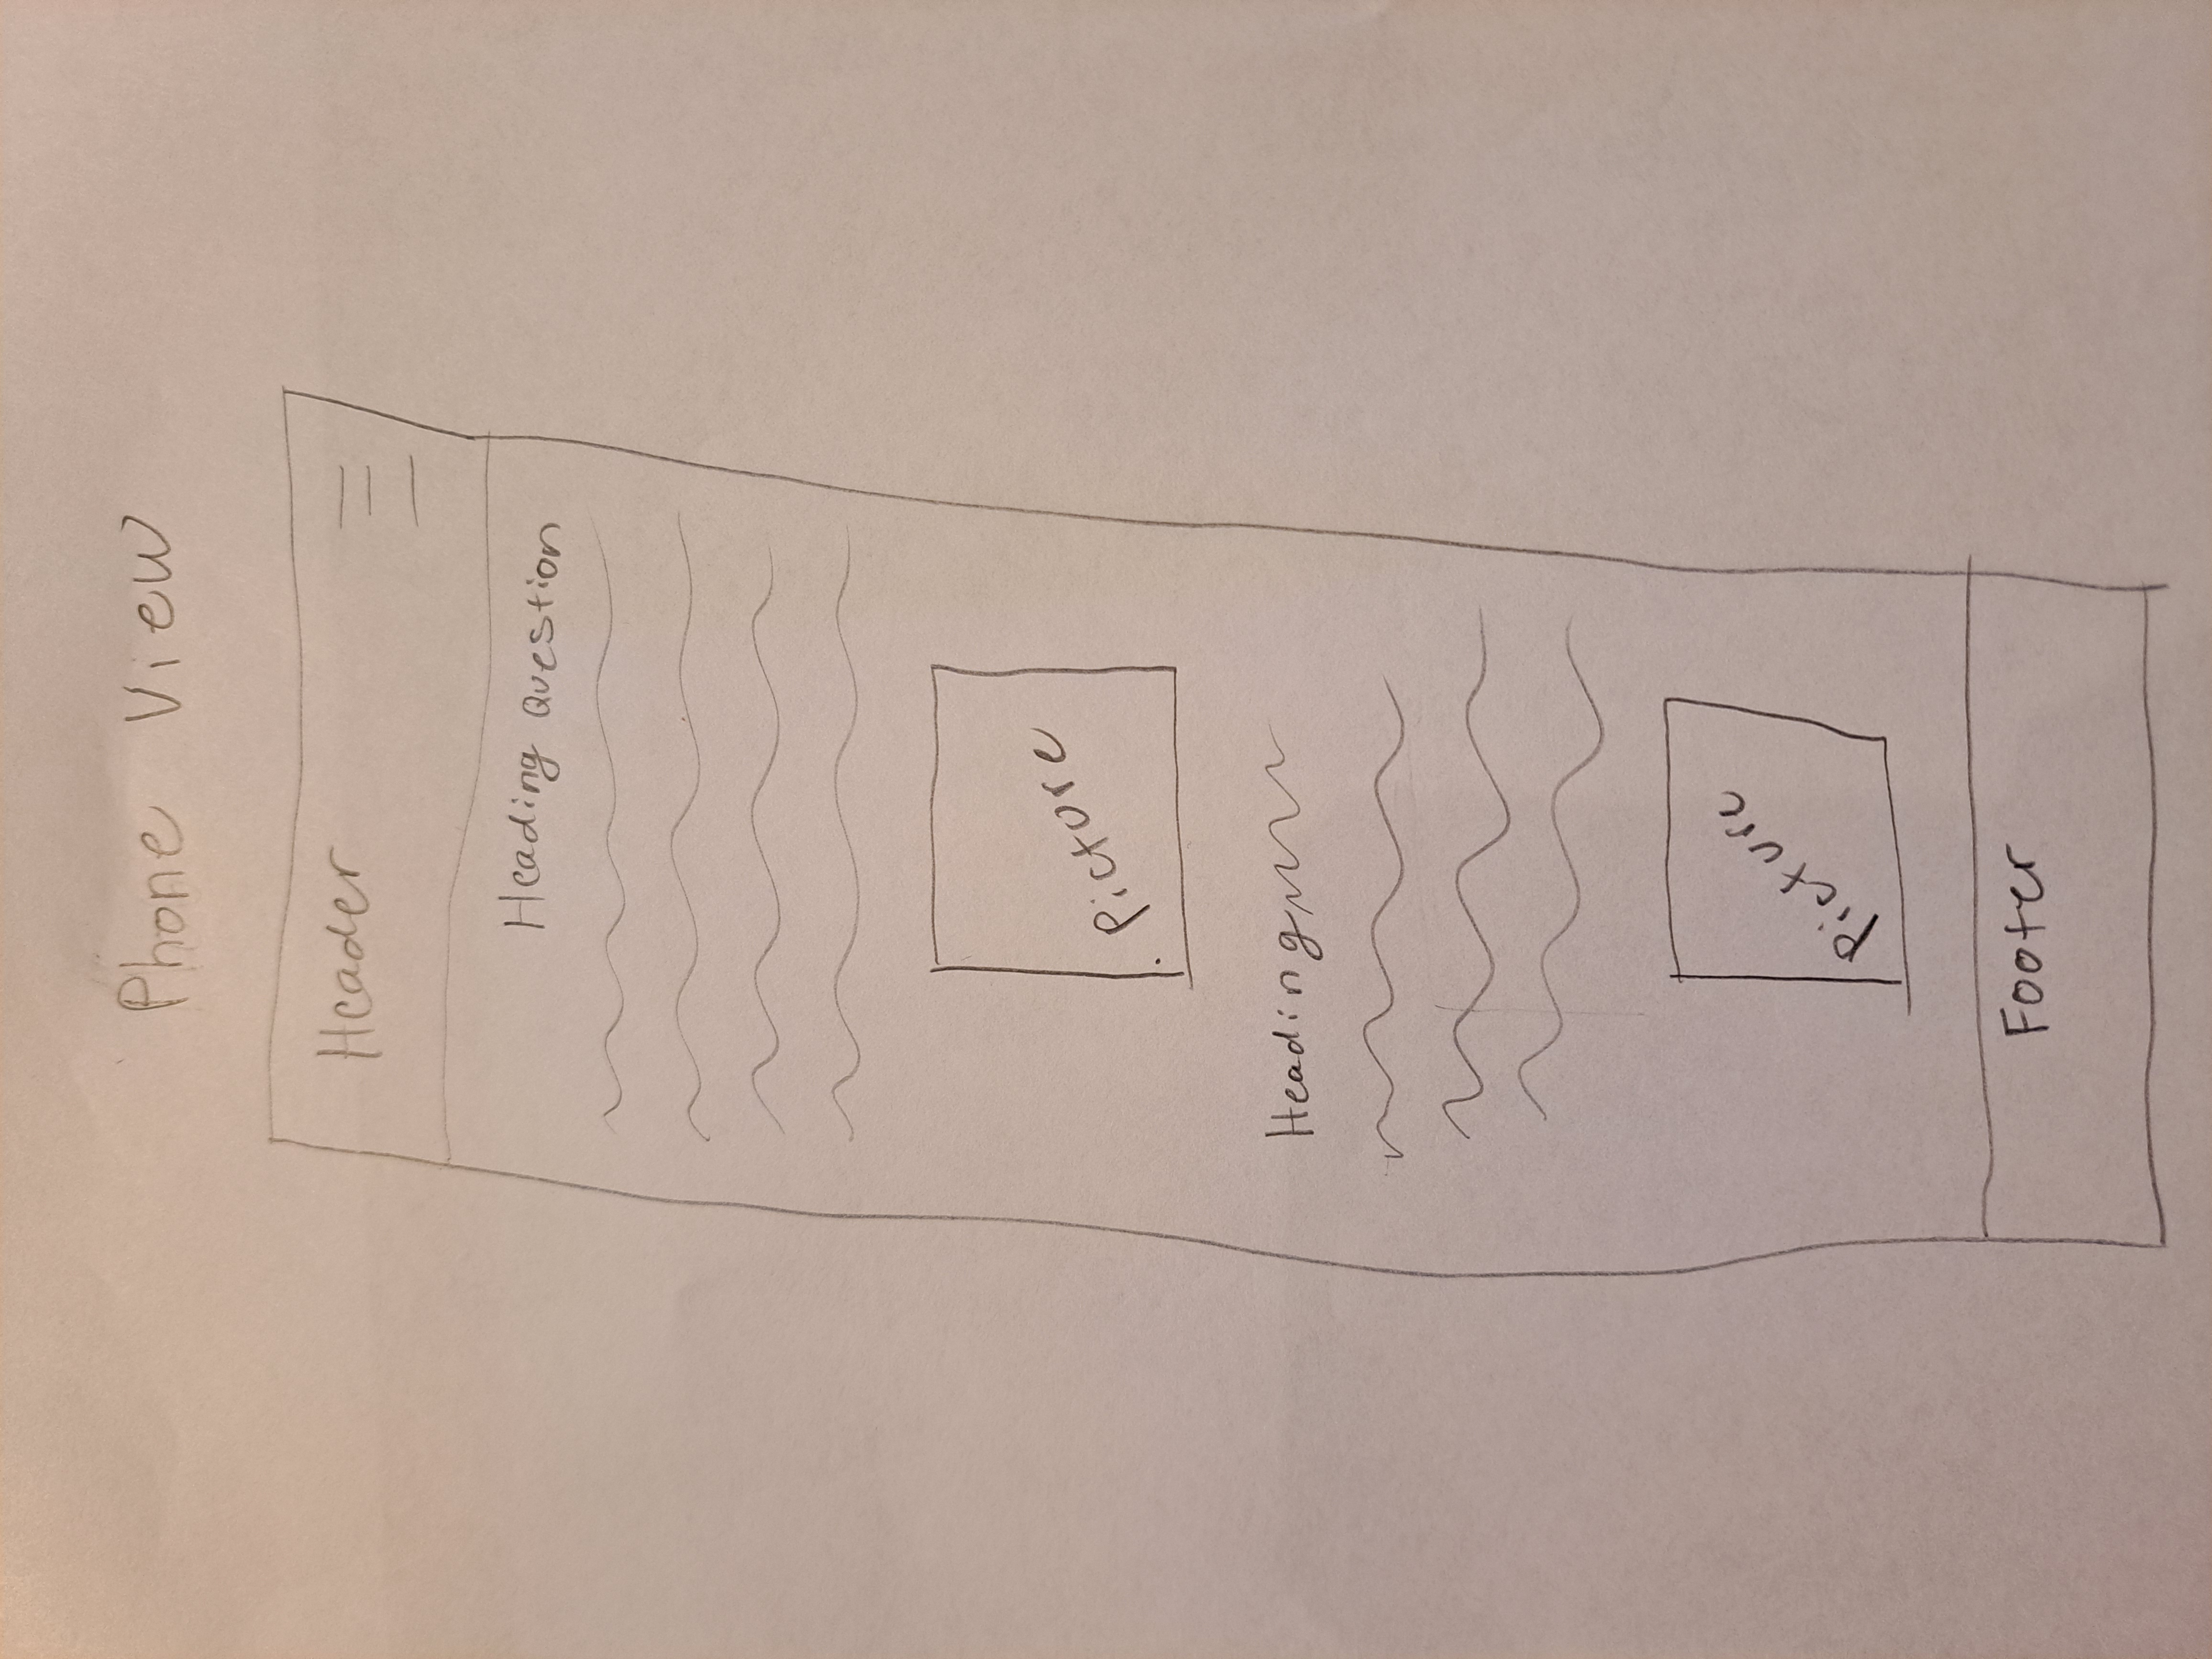 Phone View
Header
Heading Question
Picture
Heading
Picture
Footer